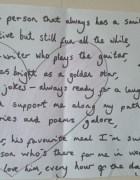 person that always has a
live but still fun all the while
writer who plays the guitar
as bright as a golden star,
jokes – always ready for a laugh
d support me along my path
ories and poems galore
, his favourite meal I'm sure
erson who's there for me in
love him every hour go the da